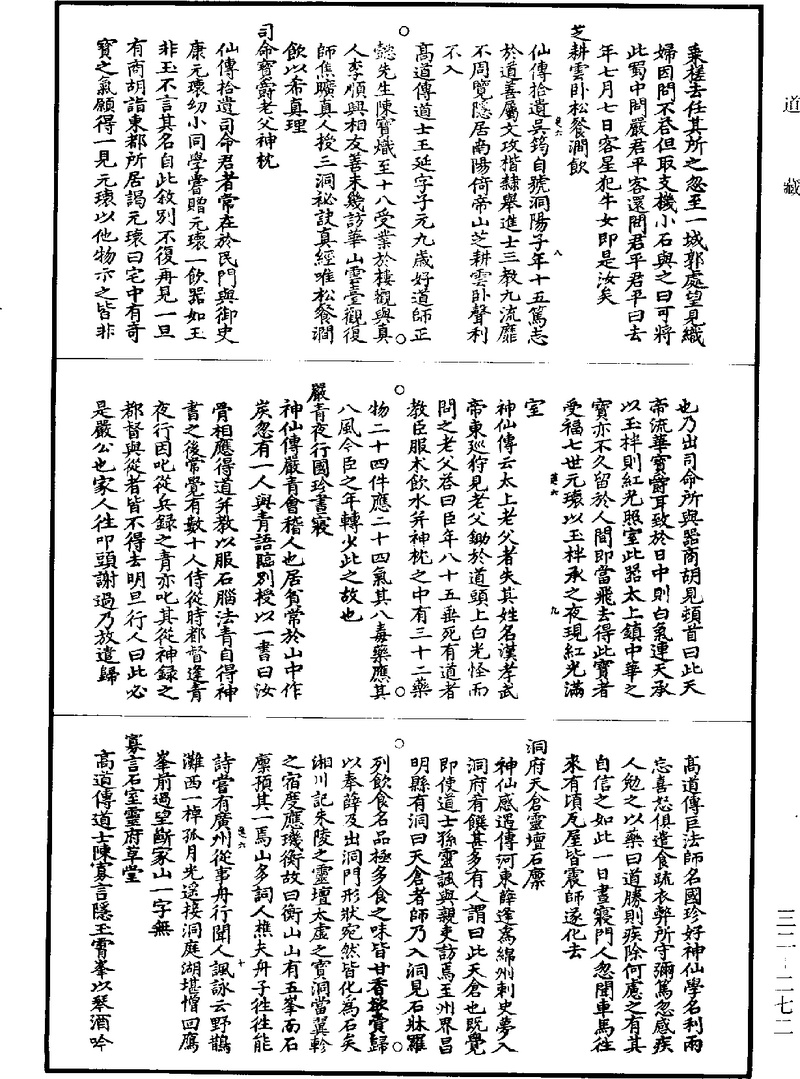 道藏
乘槎去任其所之忽至一城郭處望見織
婦因問不答但取支機小石與之曰可將
此蜀中問嚴君平客還問君平君平曰去
年七月七日客星犯牛女即是汝矣
芝耕雲卧松餐澗飲
仙傳拾遺吳筠自號洞陽子年十五篤志
於道善屬文攻楷隸舉進士三教九流靡
不周覽隱居南陽倚帝山芝耕雲卧聲利
不入
高道傳道士王延字子元九歲好道師正
懿先生陳寶熾至十八受業於樓觀與真
人李順興相友善未幾訪華山雲臺觀復
師焦曠真人授三洞祕訣真經唯松餐澗
飲以希真理
司命寶爵老父神枕
仙傳拾遺司命君者常在於民門與御史
康元瓌幼小同學嘗贈元瓌一飲器如玉
非玉不言其名自此敘別不復再見一旦
有商胡詣東都所居謁元瓌曰宅中有奇
寶之氣願得一見元瓌以他物示之皆非
也乃出司命所與器商胡見頭首曰此天
帝流華寶爵耳致於日中則白氣連天承
以玉柈則紅光照室此器太上鎮中華之
寶亦不久留於人間即當飛去得此寶者
受福七世元瓌以玉柈承之夜現紅光滿
室
神仙傳云太上老父者失其姓名漢孝武
帝東巡狩見老父鋤於道頭上白光怪而
問之老父答曰臣年八十五垂死有道者
教臣服术飲水并神枕之中有三十二藥
物二十四件應二十四氣其八毒藥應其
八風今臣之年轉少此之故也
嚴青夜行國珍晝寢
神仙傳嚴青會稽人也居貧常於山中作
炭忽有一人與青語臨別授以一書曰汝
骨相應得道并教以服石腦法青自得神
書之後常覺有數十人侍從時都督逢青
夜行因叱從兵錄之青亦叱其從神錄之
都督與從者皆不得去明旦行人曰此必
是嚴公也家人往叩頭謝過乃放遣歸
高道傳巨法師名國珍好神仙學名利兩
忘喜怒俱遣食蔬衣弊所守彌篤忽感疾
人勉之以藥曰道勝則疾除何慮之有其
自信之如此一日晝寢門人忽聞車馬往
來有頃瓦屋皆震師遂化去
洞府天倉靈壇石廩
神仙感遇傳河東薛逢為綿州刺史夢入
洞府肴饌甚多有人謂曰此天倉也既覺
即使道士孫靈諷與親吏訪焉至州界昌
明縣有洞曰天倉者師乃入洞見石牀羅
列飲食名品極多食之味皆甘香欲賫歸
以奉薛及出洞門形狀宛然皆化為石矣
湘川記朱陵之靈壇太虛之寶洞當翼軫
之宿度應璣衡故曰衡山山有五峯而石
廩預其一焉山多詞人樵夫舟子往往能
詩嘗有廣州從事舟行聞人諷詠云野鵲
灘西一棹孤月光遙接洞庭湖堪憎回鴈
峯前過望斷家山一字無
寡言石室靈府草堂
高道傳道士陳寡言隱玉霄峯以琴酒吟
三二–二七二